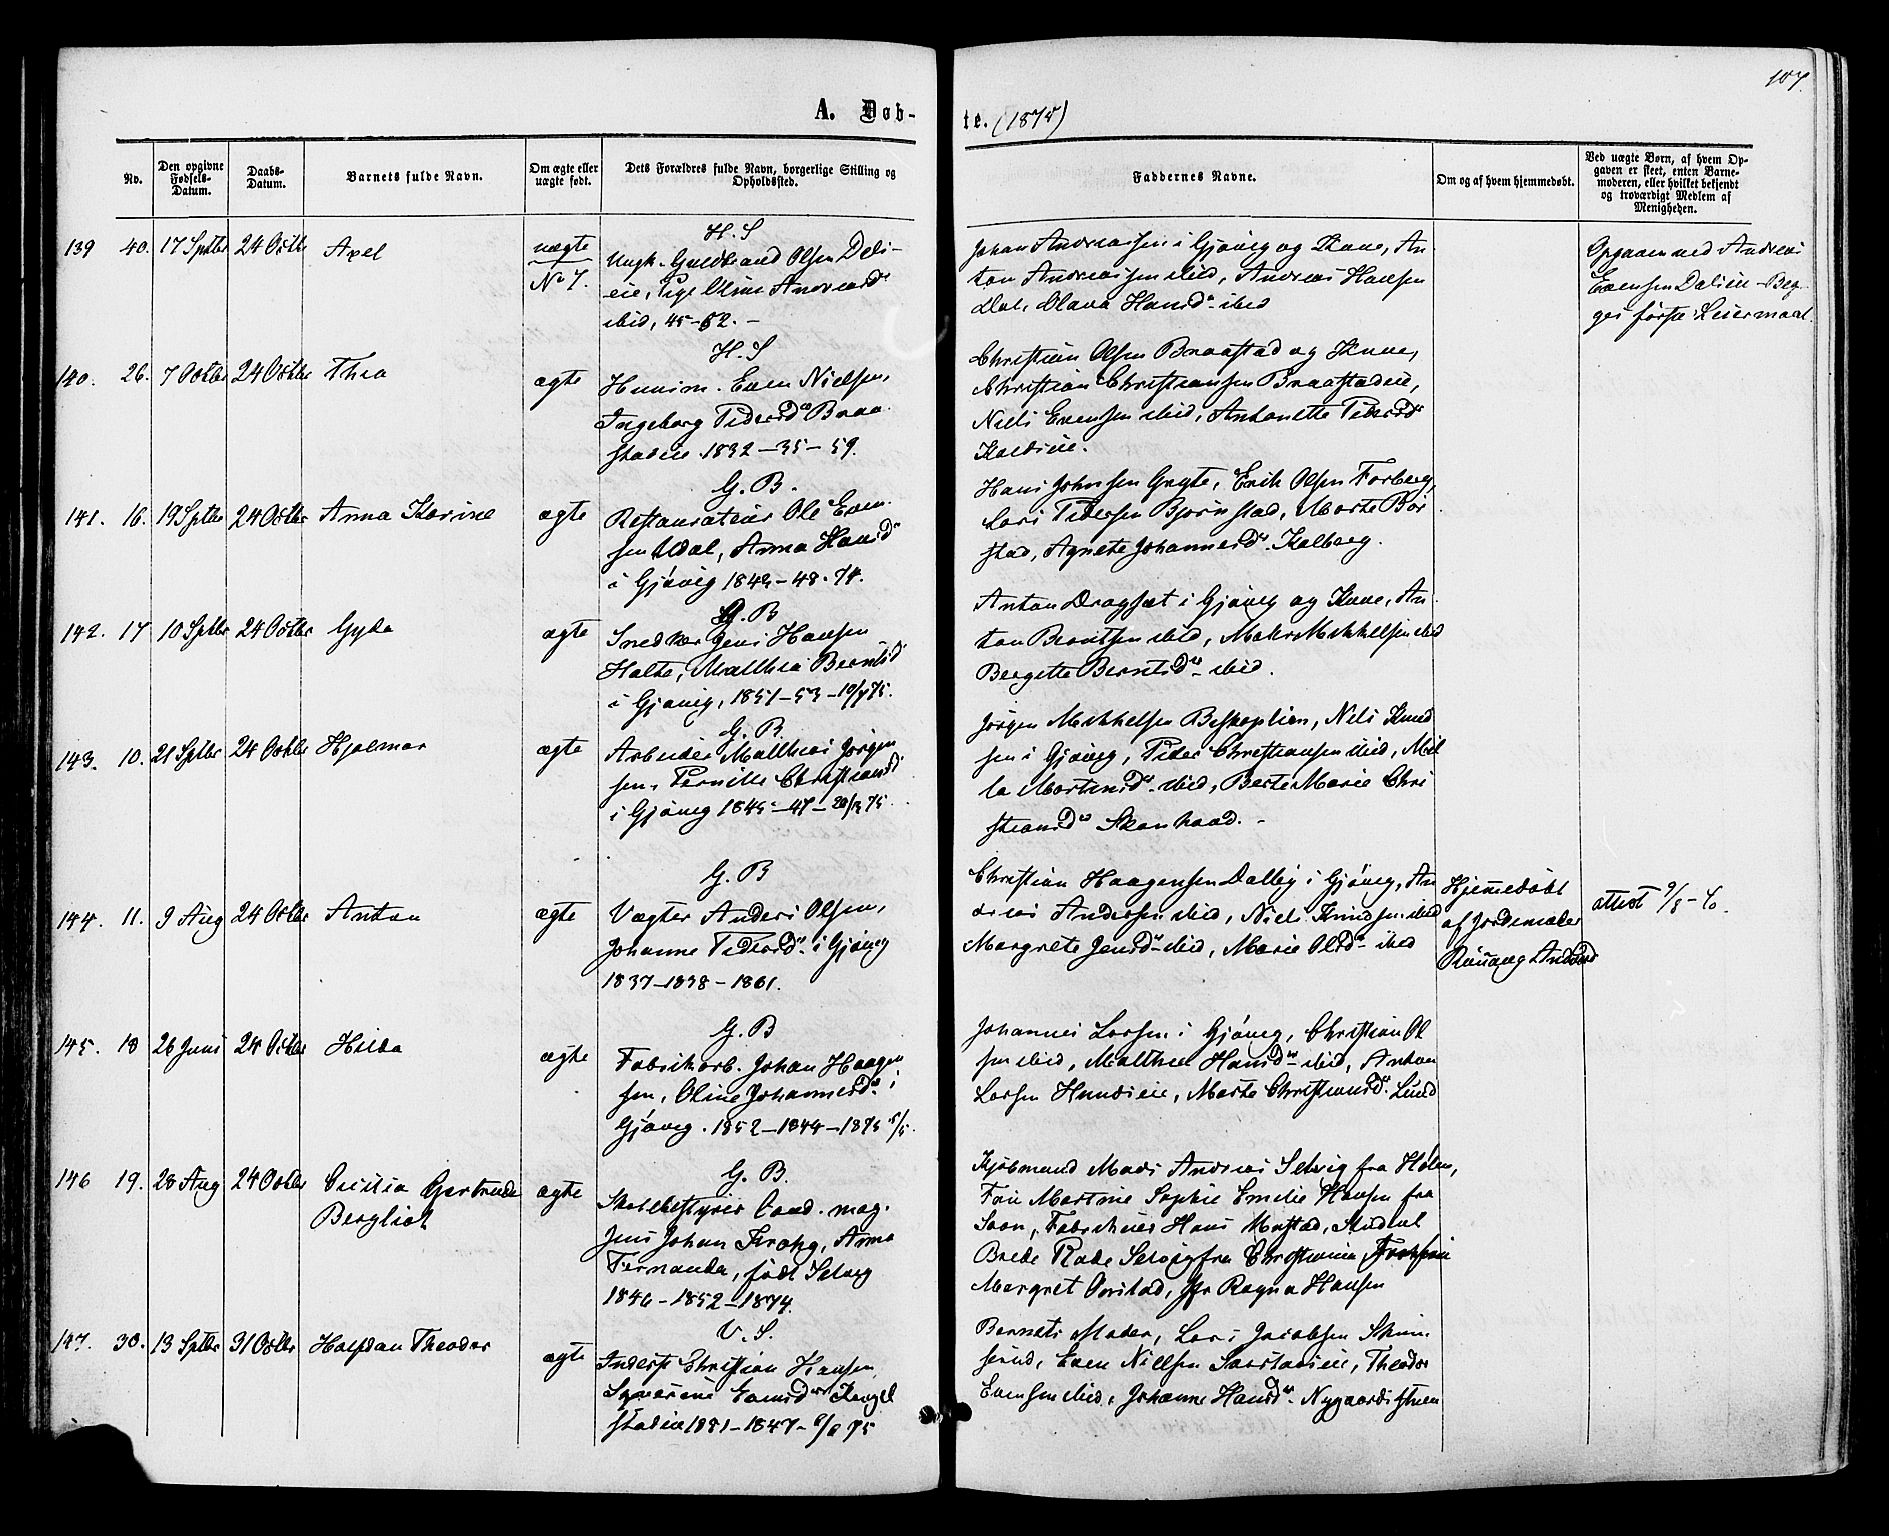 107.
A. Døb-
te. (1875)
No.
Den opgivne Fødsels-Datum.
Daabs-Datum.
Barnets fulde Navn.
Om ægte eller uægte født.
Dets Forældres fulde Navn, borgerlige Stilling og Opholdssted.
Faddernes Navne.
Om og af hvem hjemmedøbt.
Ved uægte Børn, af hvem Op-
gaven er skeet, enten Barne-
moderen, eller hvilket bekjendt
og troværdigt Medlem af
Menigheden.
139 40. 17 Sptbr 24 Octbr Axel uægte
No 7.
H. S
Ungk. Guldbrand Olsen Dali-
eie, Pige Oline Andreasd.
ibid, 45-52. -
Johan Andreassen i Gjøvig og Kone, An-
ton Andreassen ibid, Andreas Hansen
Dal, Olava Hansd. ibid
Opgaven ved Andreas
Evensen Dalieie - Beg-
ges første Leiermaal.
140. 26. 7 Octbr 24 Octbr Thea ægte
H. S
Huusm. Even Nielsen,
Ingeborg Pedersd. Braa-
stadeie 1832-35-59.
Christian Olsen Braastad og Kone,
Christian Christiansen Braastadeie,
Niels Evensen ibid, Antonette Pedersd.
141. 16. 19 Sptbr 24 Octbr Anna Karine ægte
G. B.
Restauratør Ole Even-
sen Udal, Anna Hansd.
i Gjøvig 1849-48-74.
Hans Johnsen Grythe, Erik Olsen Forberg,
Lars Pedersen Bjørnstad, Marte Bør-
stad, Agnete Johannesd. Kolberg.
142. 17 10 Sptbr 24 Octbr Gyda ægte
G. B
Snedker Jens Hansen
Holte, Mathea Berntsd.
i Gjøvig, 1851-53-
Anton Dragsæt i Gjøvig og Kone, An-
ton Berntsen ibid, ibid
Bergette Berntsd. ibid.
143. 10. 21 Sptbr 24 Octbr Hjalmar ægte
G. B.
Arbeider Matthias Jørgen-
sen, Pernille Christiansd.
i Gjøvig 1845-47-
Jørgen Mikkelsen Bispeplien, Nils Knud-
sen i Gjøvig, Peder Christiansen ibid, Mil-
la Mortensd. ibid, Berte Marie Chri-
stiansd. Skonhoed. -
144. 11. 9 Aug 24 Octbr Anton ægte
G. B
Vægter Anders Olsen,
Johanne Pedersd. i Gjøvig
1837-1838-1861.
Christian Haagensen Dalby i Gjøvig, An-
dreas Andersen ibid, Niels Knudsen ibid
Margrete Jensd. ibid, Marie Olsd. ibid
Hjemmedøbt
af Jordemoder
Andersd
attest
145. 18 26 Juni 24 Octbr Hilda ægte
G. B
Fabrikarb. Johan Haagen-
sen, Oline Johannesd. i
Gjøvig. 1852-1844-1875 5/5.
Johannes Larsen i Gjøvig, Christian Ol-
sen ibid, Mathea Hansd. ibid, Anton
Larsen Hunseie, Marte Christiansd. Lund
146 19. 28 Aug 24 Octbr Cecilia Gertrude
Bergliot ægte
G. B.
Skolebestyrer Cand. mag.
Jens Johan Krohg, Anna
Fernanda, født Selvig
1846-1852-1874.
Kjøbmand Mads Andreas Selvig fra Holen,
Fru Martine Sophie Emilie Hansen fra
Soon, Fabrikeier Hans Mustad, Student
Brede Rode Selvig fra Christiania
Margret Onstad, Jfr Ragna Hansen
147. 30. 13 Sptbr 31 Octbr Halfdan Theodor ægte
V. S.
Inderst Christian Hansen,
Evensd. Kengel-
stadeie 1851-1847- 75
Barnets Moder, Lars Jacobsen
Even Nielsen Theodor
Evensen ibid, Johanne Hansd. Nygaardsstuen